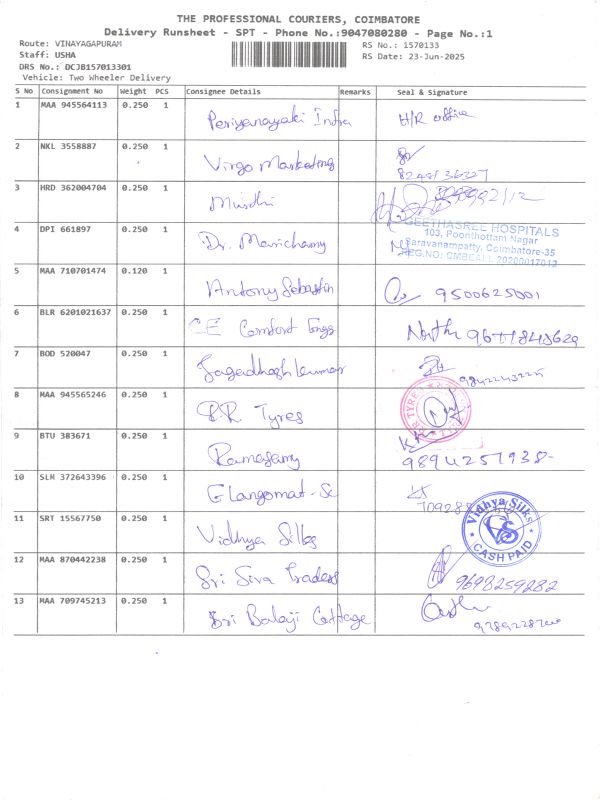 THE PROFESSIONAL COURIERS, COIMBATORE
Delivery Runsheet - SPT - Phone No.:9047080280 - Page No.:1
Route: VINAYAGAPURAM
RS No.: 1570133
Staff: USHA
RS Date: 23-Jun-2025
DRS No.: DCJB157013301
Vehicle: Two Wheeler Delivery
S No Consignment No Weight PCS Consignee Details Remarks Seal & Signature
1 MAA 945564113 0.250 1 Periyanayaki Infra H/R office
2 NKL 3558887 0.250 1 Virgo Marketing
8248136327
3 HRD 362004704 0.250 1
GEETHASREE HOSPITALS
103, Poonthottam Nagar
4 DPI 661897 0.250 1 Dr. Marichamy
Saravanampatty, Coimbatore-35
5 MAA 710701474 0.120 1 Antony Sebastin 9500625001
6 BLR 6201021637 0.250 1 CE Comfort
7 BOD 520047 0.250 1
8 MAA 945565246 0.250 1 Tyres
TYRES
9 BTU 383671 0.250 1 Ramasamy
9894257938
10 SLM 372643396 0.250 1
11 SRT 15567750 0.250 1 Vidhya Silks
Vidhya Silks
VS
CASH PAID
12 MAA 870442238 0.250 1 Sri Siva Traders 9698259282
13 MAA 709745213 0.250 1 Sri Balaji Cottage